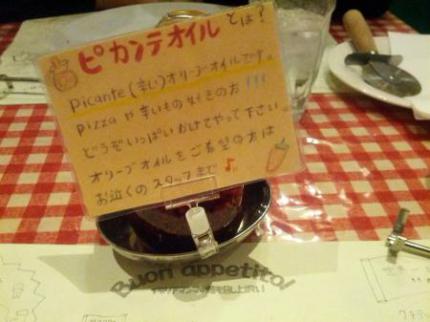 ピカンテオイル とは?
Picante(辛い)オリーブオイルです。
pizza や 辛いもの 好きの方!!!
どうぞいっぱいかけてやって下さい。
オリーブオイルをご希望の方は
お近くのスタッフまで♪
Buon appetito!